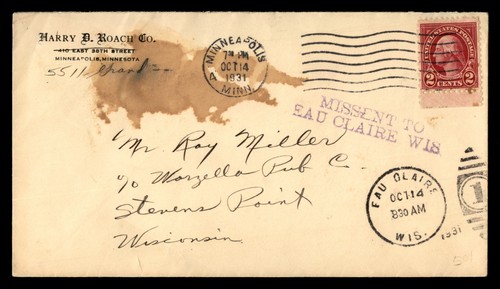 HARRY D. ROACH CO.
410 EAST 36TH STREET
MINNEAPOLIS, MINNESOTA
5511
MINNEAPOLIS
4 MINN.
7 PM
OCT 14
1931
UNITED STATES POSTAGE
2 CENTS 2
MISSENT TO
EAU CLAIRE WIS
Mr. Ray Miller
c/o Worzella Pub Co.
Stevens Point
Wisconsin
EAU CLAIRE
OCT 14
830 AM
WIS.
1931
1